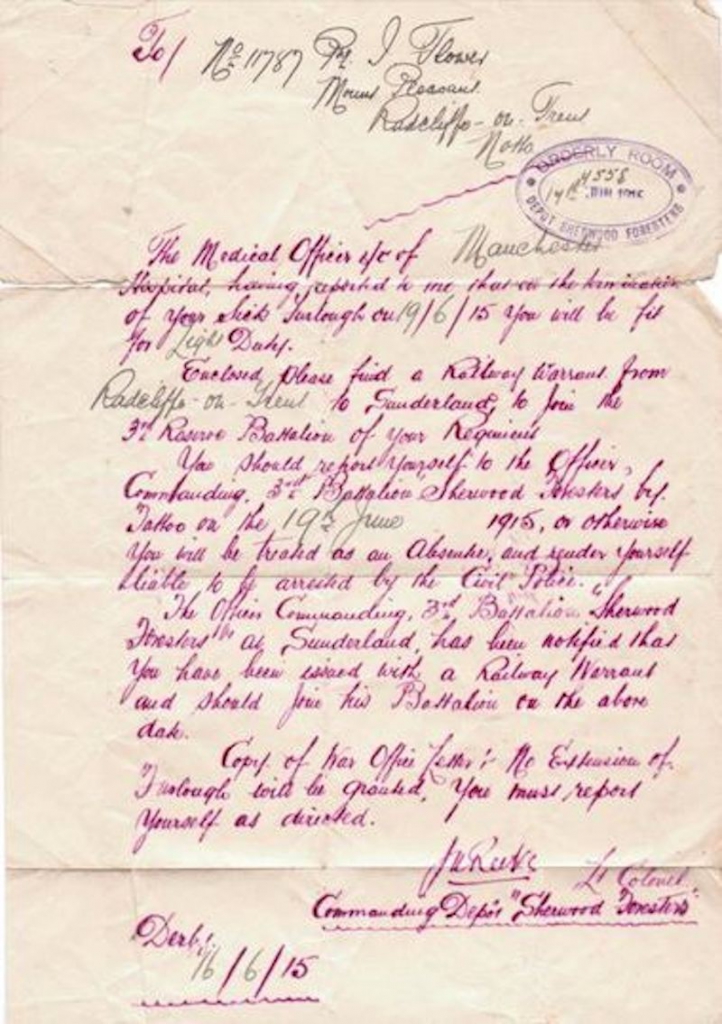 To/ No 11787 Pte J Flower
Mount Pleasant
Radcliffe-on-Trent
Notts
ORDERLY ROOM
4558
17th JUN 1915
DEPOT SHERWOOD FORESTERS
The Medical Officer i/c of Manchester
Hospital, having reported to me that on the termination
of your sick Furlough on 19/6/15 you will be fit
for Light Duty.
Enclosed please find a Railway Warrant from
Radcliffe-on-Trent to Sunderland, to join the
3rd Reserve Battalion of your Regiment
You should report yourself to the Officer,
Commanding, 3rd Battalion "Sherwood Foresters by
Tattoo on the 19th June 1915, or otherwise
you will be treated as an Absentee, and render yourself
liable to be arrested by the Civil Police.
The Officer Commanding, 3rd Battalion "Sherwood
Foresters" at Sunderland, has been notified that
you have been issued with a Railway Warrant
and should join his Battalion on the above
date.
Copy of War Office Letter:- No Extension of
Furlough will be granted, You must report
yourself as directed.
Lt Colonel
Commanding Depôt "Sherwood Foresters"
Derby.
16/6/15